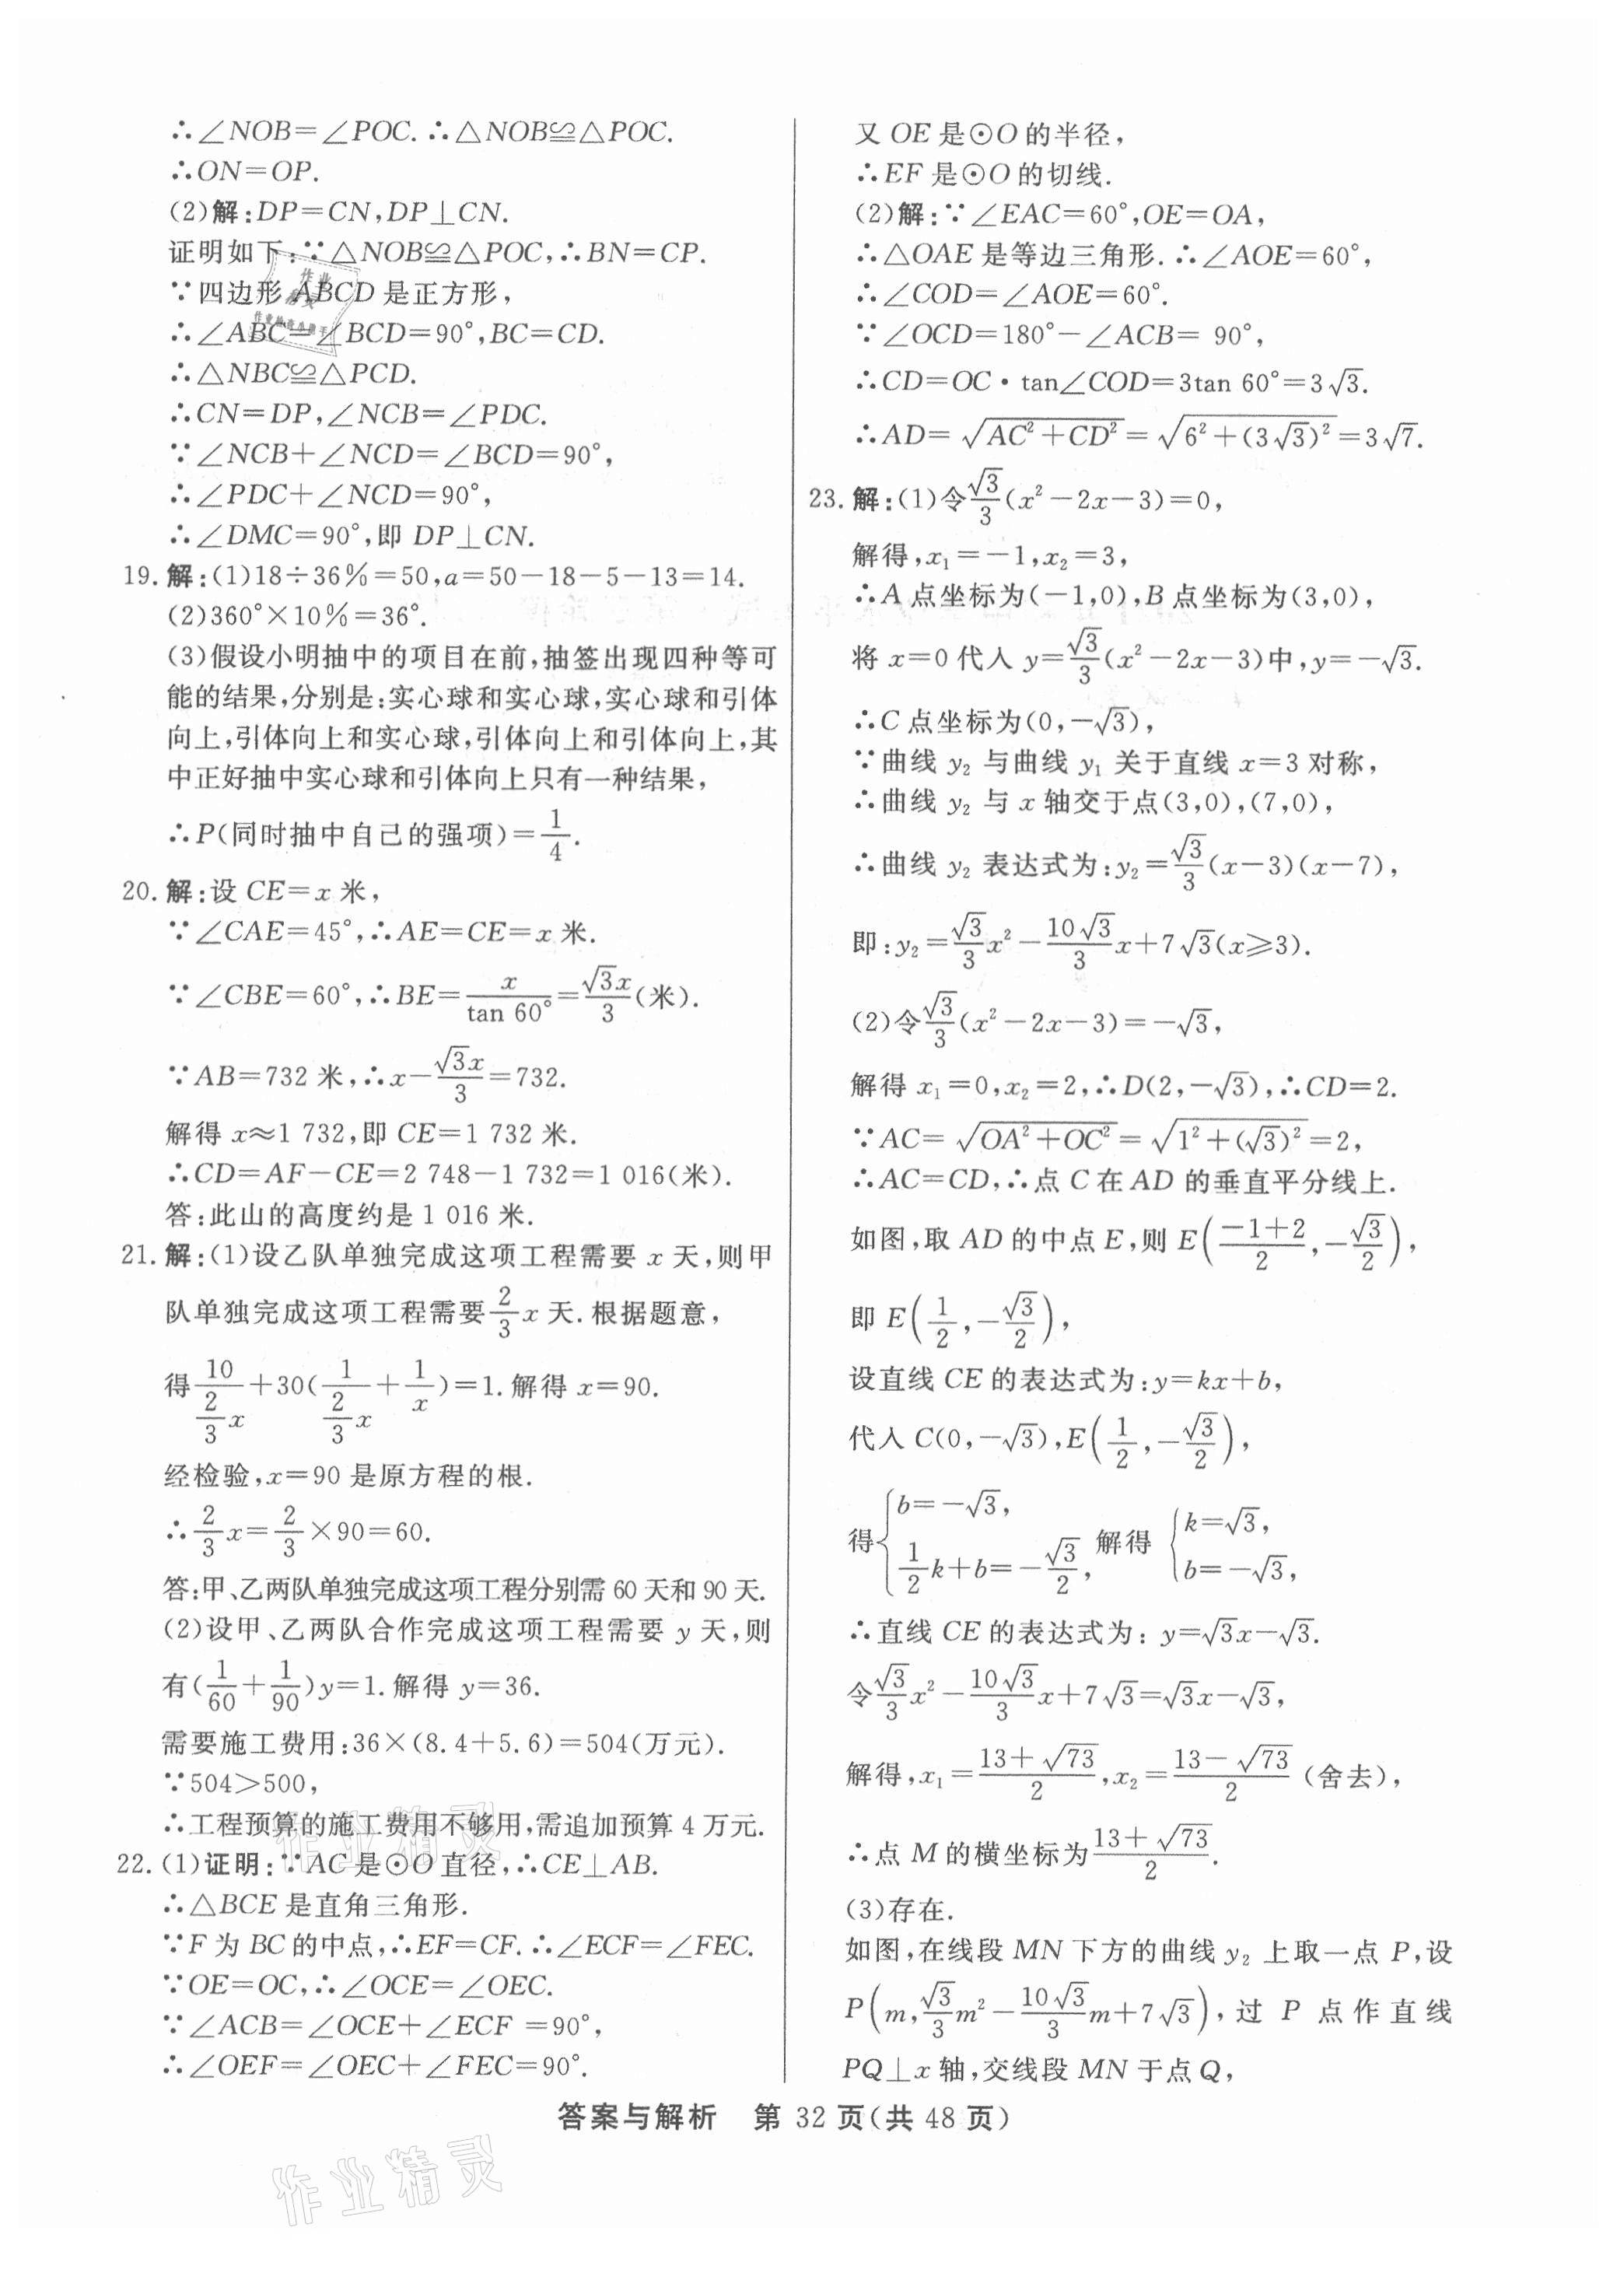 ∴∠NOB=∠POC.∴△NOB≌△POC.
∴ON=OP.
(2)解:DP=CN,DP⊥CN.
证明如下:∵△NOB≌△POC,∴BN=CP.
∵四边形 ABCD 是正方形,
∴∠ABC=∠BCD=90°,BC=CD.
∴△NBC≌△PCD.
∴CN=DP,∠NCB=∠PDC.
∵∠NCB+∠NCD=∠BCD=90°,
∴∠PDC+∠NCD=90°,
∴∠DMC=90°,即 DP⊥CN.
19. 解:(1)18÷36%=50,a=50-18-5-13=14.
(2)360°×10%=36°.
(3)假设小明抽中的项目在前,抽签出现四种等可
能的结果,分别是:实心球和实心球,实心球和引体
向上,引体向上和实心球,引体向上和引体向上,其
中正好抽中实心球和引体向上只有一种结果,
∴P(同时抽中自己的强项)=1/4.
20. 解:设 CE=x 米,
∵∠CAE=45°,∴AE=CE=x 米.
∵∠CBE=60°,∴BE=x/tan 60°=√3x/3(米).
∵AB=732 米,∴x-√3x/3=732.
解得 x≈1 732,即 CE=1 732 米.
∴CD=AF-CE=2 748-1 732=1 016(米).
答:此山的高度约是 1 016 米.
21. 解:(1)设乙队单独完成这项工程需要 x 天,则甲
队单独完成这项工程需要2/3x 天.根据题意,
得10/(2/3x)+30(1/(2/3x)+1/x)=1.解得 x=90.
经检验,x=90 是原方程的根.
∴2/3x=2/3×90=60.
答:甲、乙两队单独完成这项工程分别需 60 天和 90 天.
(2)设甲、乙两队合作完成这项工程需要 y 天,则
有(1/60+1/90)y=1.解得 y=36.
需要施工费用:36×(8.4+5.6)=504(万元).
∵504>500,
∴工程预算的施工费用不够用,需追加预算 4 万元.
22. (1)证明:∵AC是⊙O直径,∴CE⊥AB.
∴△BCE 是直角三角形.
∵F 为 BC 的中点,∴EF=CF.∴∠ECF=∠FEC.
∵OE=OC,∴∠OCE=∠OEC.
∵∠ACB=∠OCE+∠ECF =90°,
∴∠OEF=∠OEC+∠FEC=90°.
又 OE 是⊙O 的半径,
∴EF 是⊙O 的切线.
(2)解:∵∠EAC=60°,OE=OA,
∴△OAE 是等边三角形.∴∠AOE=60°,
∴∠COD=∠AOE=60°.
∵∠OCD=180°-∠ACB= 90°,
∴CD=OC·tan∠COD=3tan 60°=3√3.
∴AD=√(AC²+CD²)=√(6²+(3√3)²)=3√7.
23. 解:(1)令√3/3(x²-2x-3)=0,
解得,x₁=-1,x₂=3,
∴A 点坐标为(-1,0),B 点坐标为(3,0),
将 x=0 代入 y=√3/3(x²-2x-3)中,y=-√3.
∴C 点坐标为(0,-√3),
∵曲线 y₂ 与曲线 y₁ 关于直线 x=3 对称,
∴曲线 y₂ 与 x 轴交于点(3,0),(7,0),
∴曲线 y₂ 表达式为:y₂=√3/3(x-3)(x-7),
即:y₂=√3/3x²-10√3/3x+7√3(x≥3).
(2)令√3/3(x²-2x-3)=-√3,
解得 x₁=0,x₂=2,∴D(2,-√3),∴CD=2.
∵AC=√(OA²+OC²)=√(1²+(√3)²)=2,
∴AC=CD,∴点 C 在 AD 的垂直平分线上.
如图,取 AD 的中点 E,则 E((-1+2)/2,-√3/2),
即 E(1/2,-√3/2),
设直线 CE 的表达式为:y=kx+b,
代入 C(0,-√3),E(1/2,-√3/2),
得{b=-√3, 1/2k+b=-√3/2, 解得 {k=√3, b=-√3,
∴直线 CE 的表达式为: y=√3x-√3.
令√3/3x²-10√3/3x+7√3=√3x-√3,
解得,x₁=(13+√73)/2,x₂=(13-√73)/2(舍去),
∴点 M 的横坐标为(13+√73)/2.
(3)存在.
如图,在线段 MN 下方的曲线 y₂ 上取一点 P,设
P(m,√3/3m²-10√3/3m+7√3),过 P 点作直线
PQ⊥x 轴,交线段 MN 于点 Q,
答案与解析 第 32 页(共 48 页)
作业精灵
作业精灵
作业精灵